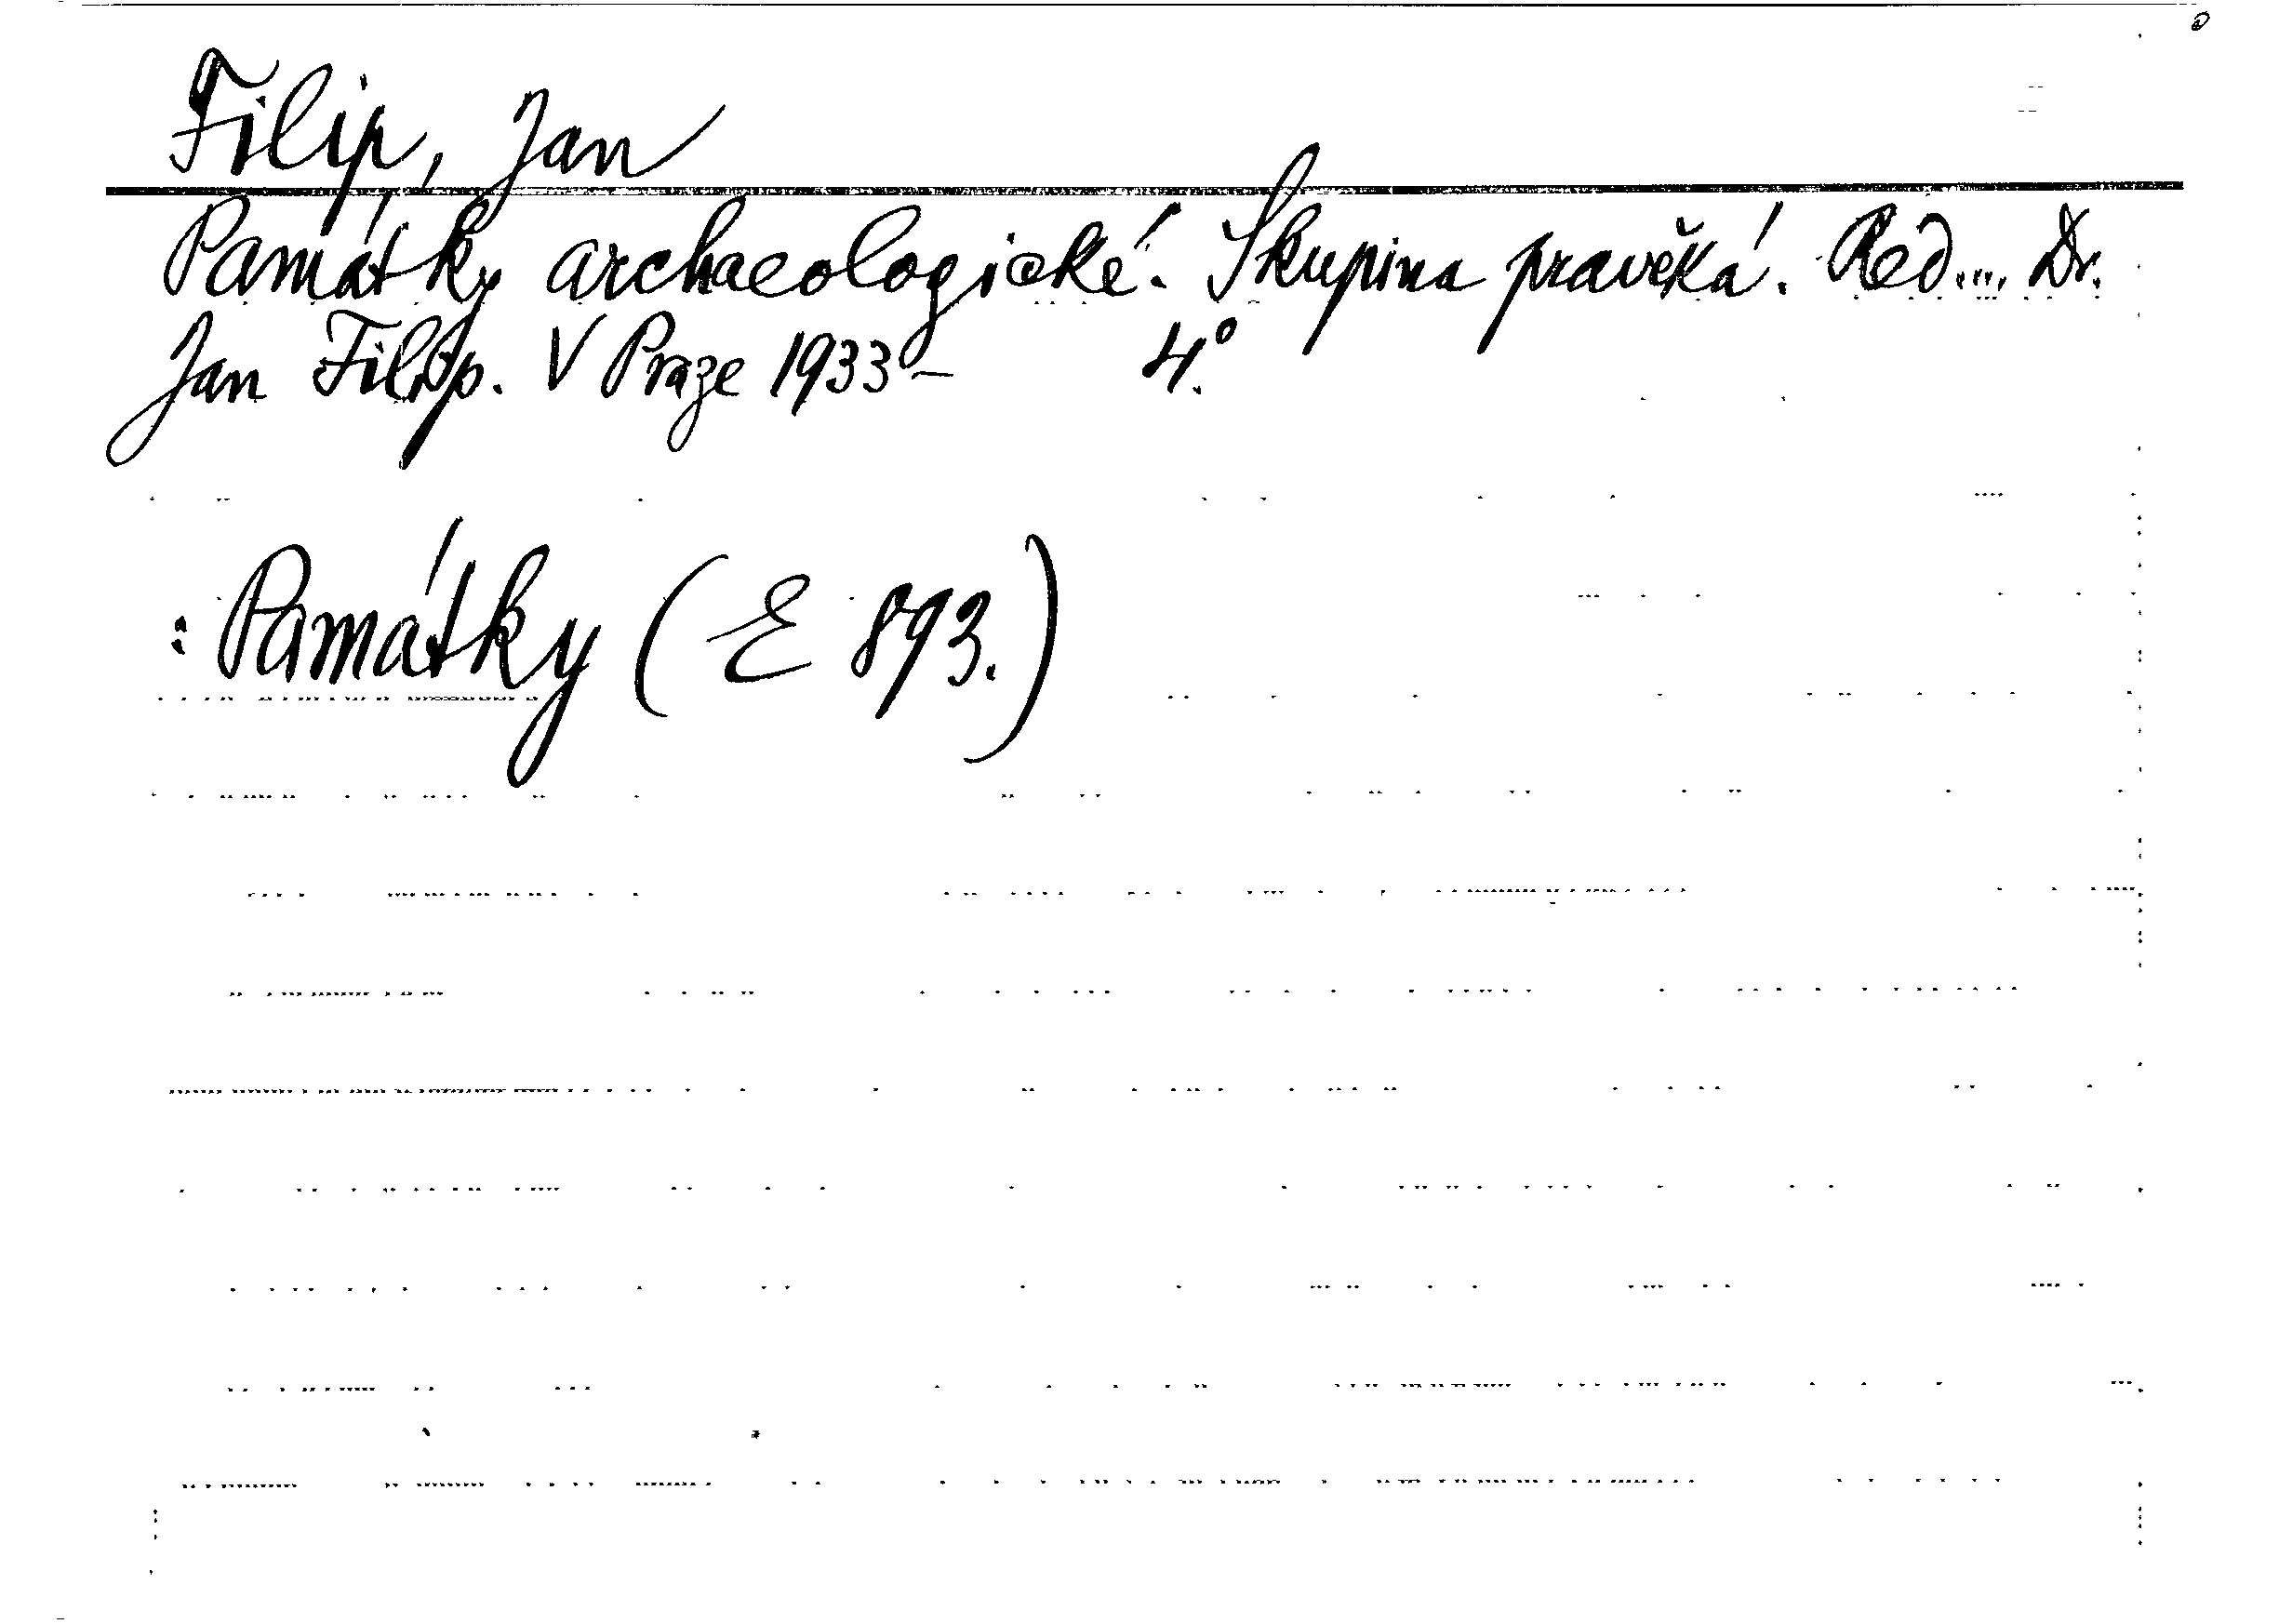 Filip, Jan
Památky archaeologické. Skupina pravěká. Red.... Dr.
Jan Filip. V Praze 1933- 4.°
: Památky (E 893.)